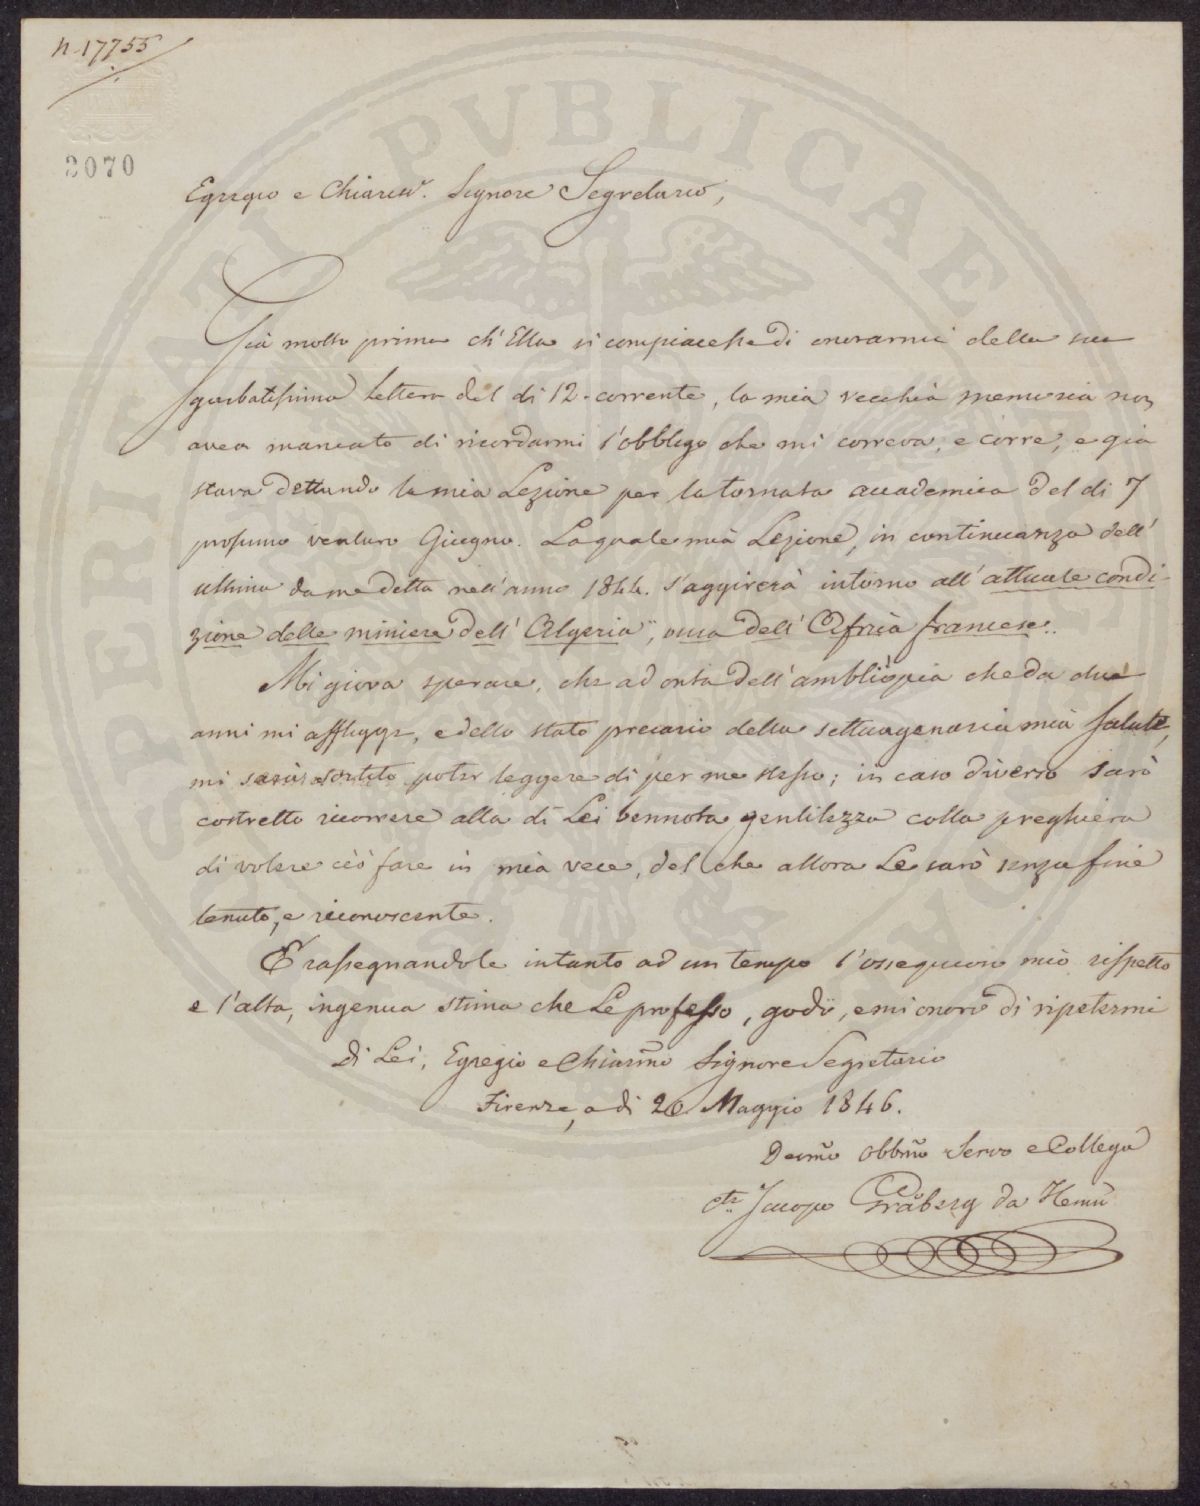 n. 17755
2070
Egregio e Chiariss. Signore Segretario,
Già molto prima ch'Ella si compiacesse di onorarmi della sua
garbatissima Lettera del dì 12. corrente, la mia vecchia memoria non
avea mancato di ricordarmi l'obbligo che mi correva, e corre, e già
stava dettando la mia Lezione per la tornata accademica del dì 7
prossimo venturo Giugno. La quale mia Lezione, in continuanza dell'
ultima da me detta nell'anno 1844. s'aggirerà intorno all'attuale condi-
zione delle miniere dell'Algeria", ossia dell'Africa francese..
Mi giova sperare, che ad onta dell'ambliopia che da due
anni mi affligge, e dello stato precario della settuagenaria mia salute,
mi sarà sortito poter leggere di per me stesso; in caso diverso sarò
costretto ricorrere alla di Lei bennota gentilezza colla preghiera
di volere ciò fare in mia vece, del che allora Le sarò senza fine
tenuto, e riconoscente.
E rassegnandole intanto ad un tempo l'ossequioso mio rispetto
e l'alta, ingenua stima che Le professo, godo, e mi onoro di ripetermi
Di Lei, Egregio e Chiarmo Signore Segretario
Firenze, a dì 20 Maggio 1846.
Devmo Obbmo Servo e Collega
Cte Jacopo Gråberg da Hemsö
SPERITATI PVBLICAE